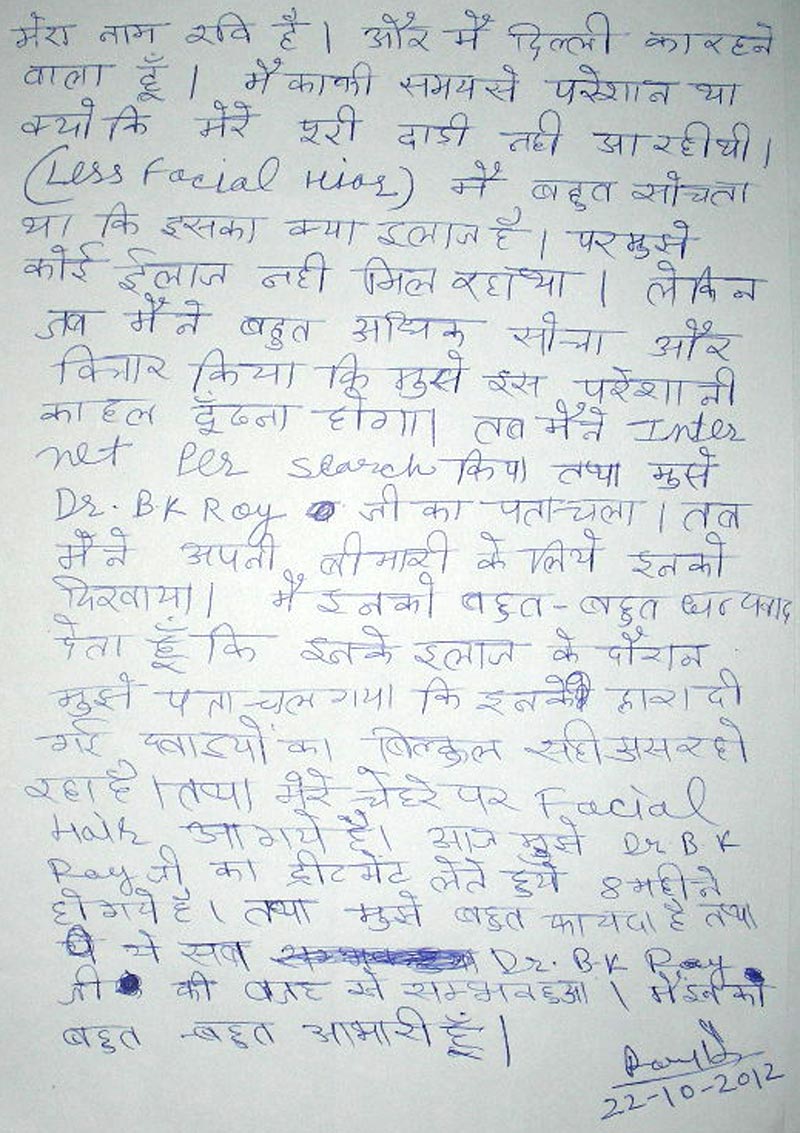 मेरा नाम रवि है। और मैं दिल्ली का रहने
वाला हूँ। मैं काफी समय से परेशान था
क्योंकि मेरे पूरी दाडी नही आ रही थी।
(Less Facial Hiar) मैं बहुत सोचता
था कि इसका क्या इलाज है। पर मुझे
कोई ईलाज नही मिल रहा था। लेकिन
जब मैंने बहुत अधिक सोचा और
विचार किया कि मुझे इस परेशानी
का हल ढूँढना होगा। तब मैंने Inter
net Per search किया तथा मुझे
Dr. B K Roy जी का पता चला। तब
मैंने अपनी बीमारी के लिये इनको
दिखाया। मैं इनको बहुत-बहुत धन्यवाद
देता हूँ कि इनके इलाज के दौरान
मुझे पता चल गया कि इनके द्वारा दी
गई दवाइयों का बिल्कुल सही असर हो
रहा है। तथा मेरे चेहरे पर Facial
Hair आ गये है। आज मुझे Dr B K
Roy जी का ट्रीटमेंट लेते हुये 8 महीने
हो गये है। तथा मुझे बहुत फायदा है तथा
ये सब Dr. B.K Roy
जी की वजह से सम्भव हुआ। मैं इनका
बहुत-बहुत आभारी हूँ।
22-10-2012